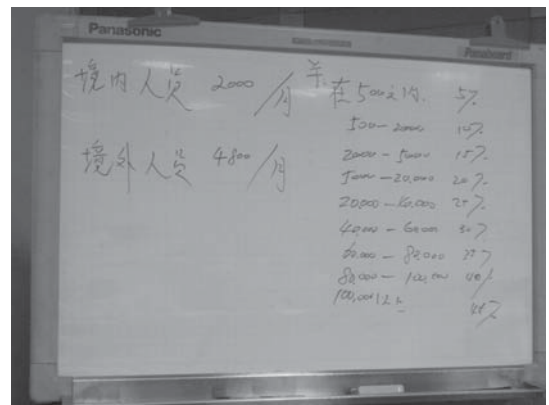 Panasonic
Panaboard
境内人员 2000/月
境外人员 4800/月
在500之内. 5%
500-2000 10%
2000-5000 15%
5000-20,000 20%
20,000-40,000 25%
40,000-60,000 30%
60,000-80,000 35%
80,000-100,000 40%
100,000以上 45%